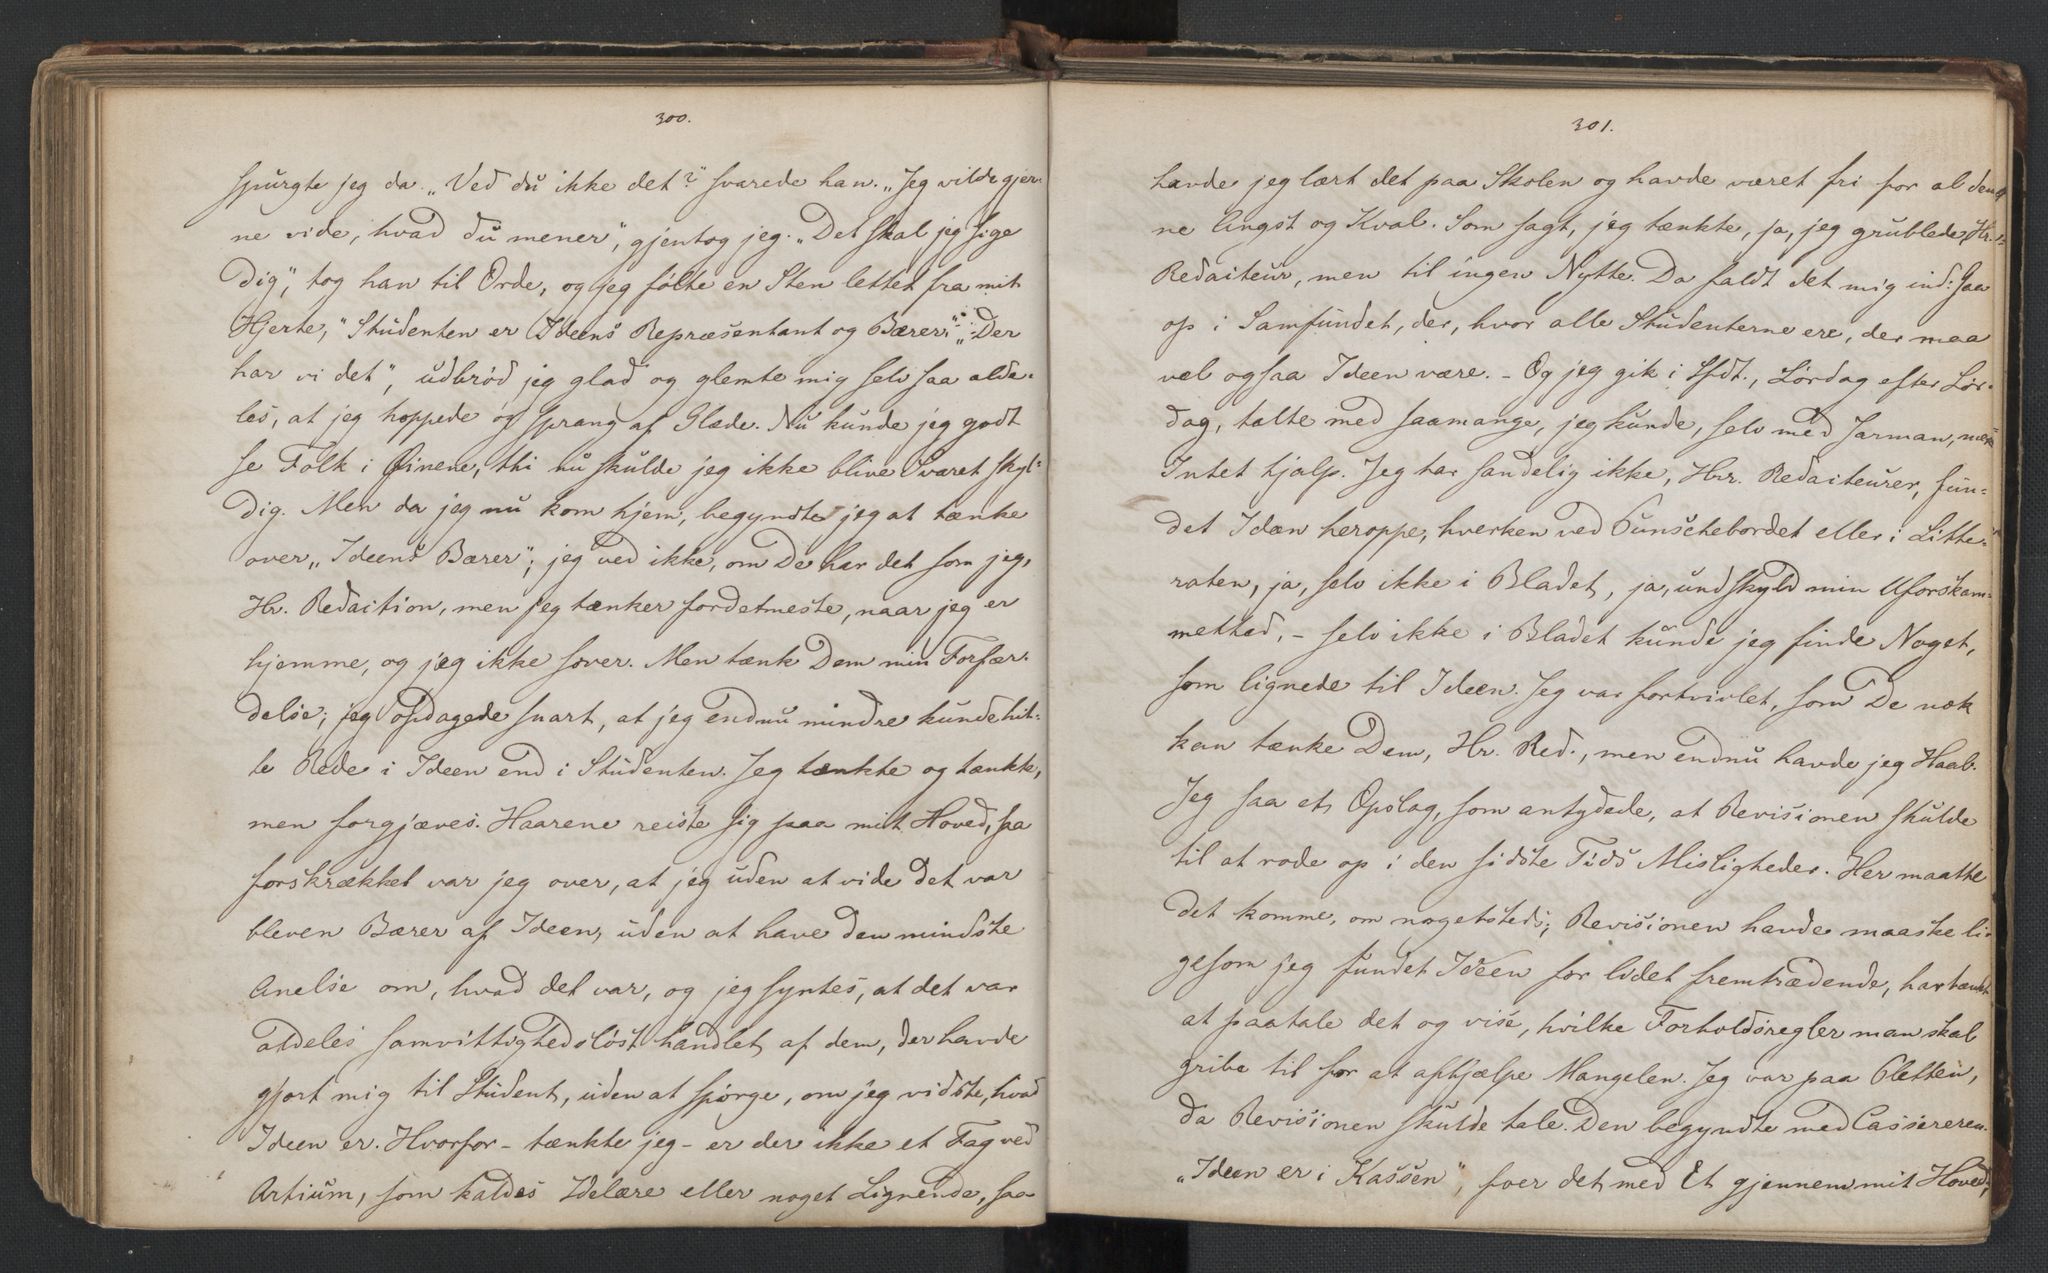 300.
spurgte jeg da. „Ved du ikke det?“ svarede han. „Jeg vilde gjer-
ne vide, hvad du mener“, gjentog jeg. „Det skal jeg sige
dig“, tog han til Orde, og jeg følte en Sten lettet fra mit
Hjerte, “Studenten er Ideens Repræsentant og Bærer“. „Der
har vi det“, udbrød jeg glad og glemte mig selv saa alde-
les, at jeg hoppede og sprang af Glæde. Nu kunde jeg godt
se Folk i Øinene, thi nu skulde jeg ikke blive Svaret skyl-
dig. Men da jeg nu kom hjem, begyndte jeg at tænke
over „Ideens Bærer“; jeg ved ikke, om De har det som jeg,
Hr. Redaction, men jeg tænker fordetmeste, naar jeg er
hjemme, og jeg ikke sover. Men tænk Dem min Forfær-
delse; jeg opdagede snart, at jeg endnu mindre kunde hit-
te Rede i Ideen end i Studenten. Jeg tænkte og tænkte,
men forgjæves. Haarene reiste sig paa mit Hoved, saa
forskrækket var jeg over, at jeg uden at vide det var
bleven Bærer af Ideen, uden at have den mindste
Anelse om, hvad det var, og jeg syntes, at det var
aldeles samvittighedsløst handlet af dem, der havde
gjort mig til Student, uden at spørge, om jeg vidste, hvad
Ideen er. Hvorfor – tænkte jeg – er der ikke et Fag ved
Artium, som kaldes Idelære eller noget Lignende, saa
301.
havde jeg lært det paa Skolen og havde været fri for al den-
ne Angst og Kval. Som sagt, jeg tænkte, ja, jeg grublede, Hr.
Redacteur, men til ingen Nytte. Da faldt det mig ind: Gaa
op i Samfundet, der, hvor alle Studenterne ere, der maa
vel ogsaa Ideen være. – Og jeg gik i Sfdt., Lørdag efter Lør-
dag, talte med saamange, jeg kunde, selv med Jarman, men
Intet hjalp. Jeg har sandelig ikke, Hrr. Redacteurer, fun-
det Idæn heroppe, hverken ved Punschebordet eller i Litte-
raten, ja, selv ikke i Bladet, ja, undskyld min Uforskam-
methed, – selv ikke i Bladet kunde jeg finde Noget,
som lignede til Ideen. Jeg var fortvivlet, som De nok
kan tænke Dem, Hr. Red., men endnu havde jeg Haab.
Jeg saa et Opslag, som antydede, at Revisionen skulde
til at rode op i den sidste Tids Misligheder. Her maatte
det komme, om nogetsteds; Revisionen havde maaske li-
gesom jeg fundet Ideen for lidet fremtrædende, har tænkt
at paatale det og vise, hvilke Forholdsregler man skal
gribe til for at afhjælpe Mangelen. Jeg var paa Pletten,
da Revisionen skulde tale. Den begyndte med Cassereren.
„Ideen er i Kassen“, foer det med Et gjennem mit Hoved;